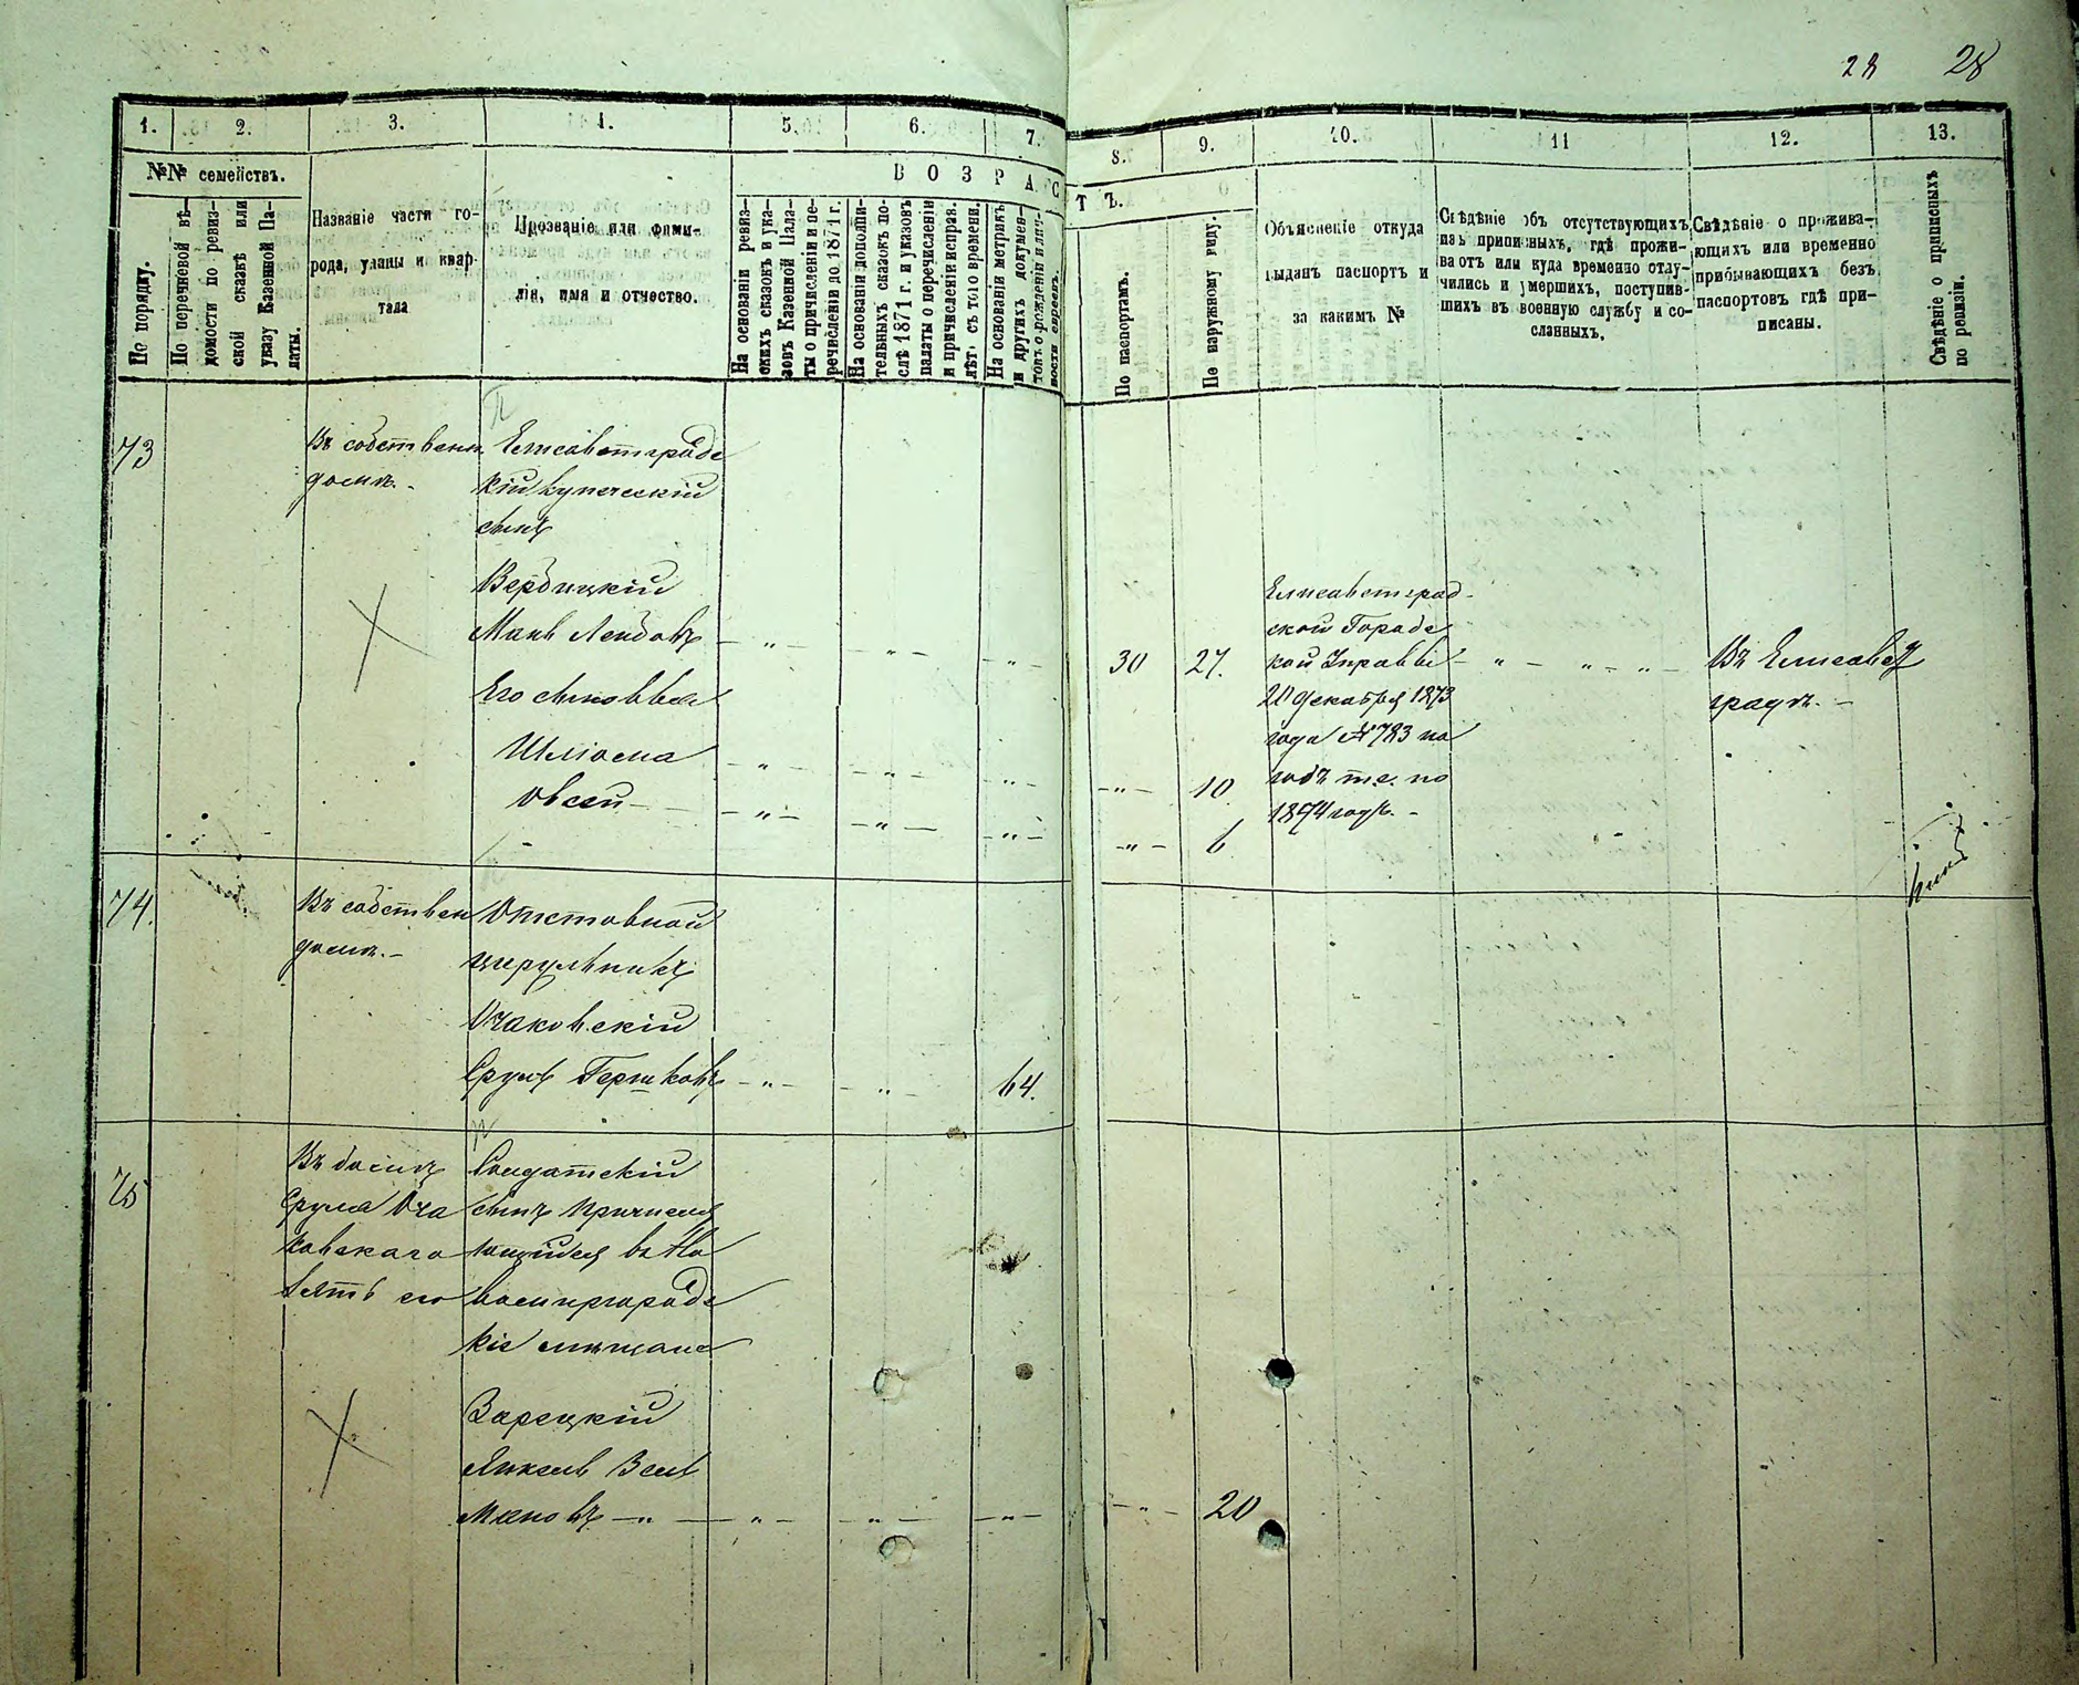 28 28
1. 2. 3. 4. 5. 6. 7. 8. 9. 10. 11 12. 13.
№№ семействъ.
ВОЗРАСТЪ.
По порядку.
По перечневой вѣ-
домости по ревиз-
ской сказкѣ или
указу Казенной Па-
латы.
Названіе части го-
рода, улицы и квар-
тала
Прозваніе или фами-
лія, имя и отчество.
На основаніи ревиз-
скихъ сказокъ и ука-
зовъ Казенной Пала-
ты о причисленіи и пе-
речисленіи до 1871 г.
На основаніи дополни-
тельныхъ сказокъ по-
слѣ 1871 г. и указовъ
палаты о перечисленіи
и причисленіи исправ.
лѣт. съ того времени.
На основаніи метрикъ
и другихъ докумен-
товъ о рожденіи и лич-
ности евреевъ.
По паспортамъ.
По наружному виду.
Объясненіе откуда
выданъ паспортъ и
за какимъ №
Свѣдѣніе объ отсутствующихъ
изъ приписныхъ, гдѣ прожи-
ваютъ или куда временно отлу-
чились и умершихъ, поступив-
шихъ въ военную службу и со-
сланныхъ.
Свѣдѣніе о прожива-
ющихъ или временно
прибывающихъ безъ
паспортовъ гдѣ при-
писаны.
Свѣдѣніе о приписныхъ
по ревизіи.
73
Въ собственн.
домѣ.
Елисаветградс
кій купеческій
сынъ
Вербицкій
Мань Лейбовъ
Его сыновья
Шліома
Овсей
30 27.
10
6
Елисаветград-
ской Городс
кой Управы
20 Декабря 1873
года № 783 на
годъ т.е. по
1874 годъ.
Въ Елисавет
градѣ.
74.
Въ собствен
домѣ.
Отставной
цирульникъ
Очаковскій
Сруль Гершковъ
64.
75
Въ домѣ
Срула Оча
ковскаго
зять его
Солдатскій
сынъ причисля
ющійся въ Но
вомиргородс
кіе мѣщане
Зарецкій
Янкель Зель
мановъ
20